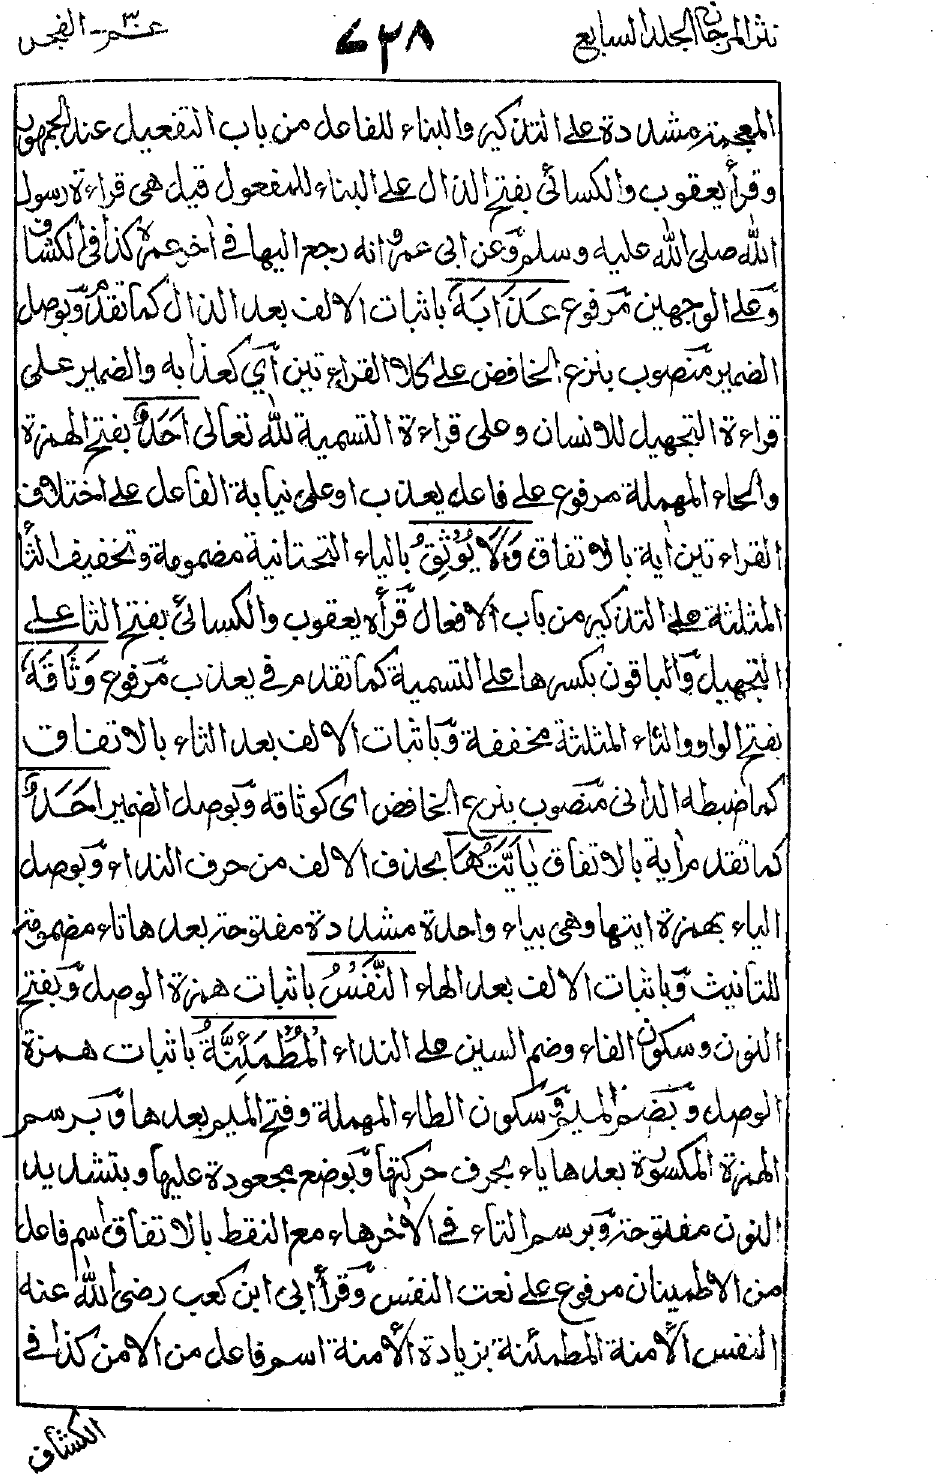 نثر المرجان الجلد السابع
٧٣٨
عمّ ٣٠ - الفجر
المعجمة مشددة على التذكير والبناء للفاعل من باب التفعيل عند الجمهور
وقرأ يعقوب والكسائي بفتح الذال على البناء للمفعول قيل هى قراءة رسول
الله صلى الله عليه وسلم وعن ابى عمرو انه رجع اليها فى اٰخر عمره كذا فى الكشاف
وعلى الوجهين مرفوع عَذَابَهٗ باثبات الالف بعد الذال كما تقدم وبوصل
الضمير منصوب بنزع الخافض على كلا القراءتين أي كعذابه والضمير على
قراءة التجهيل للانسان وعلى قراءة التسمية لله تعالى اَحَدٌ بفتح الهمزة
والحاء المهملة مرفوع على فاعل يعذب او على نيابة الفاعل على اختلاف
القراءتين اٰية بالاتفاق وَلَا يُوْثِقُ بالياء التحتانية مضمومة وتخفيف الثا
المثلثة على التذكير من باب الافعال قرأه يعقوب والكسائي بفتح الثا على
التجهيل والباقون بكسرها على التسمية كما تقدم فى يعذب مرفوع وَثَاقَهٗ
بفتح الواو والثاء المثلثة مخففة وباثبات الالف بعد الثاء بالاتفاق
كما ضبطه الدانى منصوب بنزع الخافض اى كوثاقه وبوصل الضمير اَحَدٌ
كما تقدم اٰية بالاتفاق يٰاَيَّتُهَا بحذف الالف من حرف النداء وبوصل
الياء بهمزة ايتها وهى بياء واحدة مشددة مفتوحة بعدها تاء مضمومة
للتانيث وباثبات الالف بعد الهاء النَّفْسُ باثبات همزة الوصل وبفتح
النون وسكون الفاء وضم السين على النداء الْمُطْمَئِنَّةُ باثبات همزة
الوصل وبضم الميم وسكون الطاء المهملة وفتح الميم بعدها وبرسم
الهمزة المكسورة بعدها ياء بحرف حركتها وبوضع مجعودة عليها وبتشديد
النون مفتوحة وبرسم التاء فى الاٰخر هاء مع النقط بالاتفاق اسم فاعل
من الاطمينان مرفوع على نعت النفس وقرأ ابى ابن كعب رضى الله عنه
النفس الأمنة المطمئنة بزيادة الأمنة اسم فاعل من الامن كذا فى
الكشاف